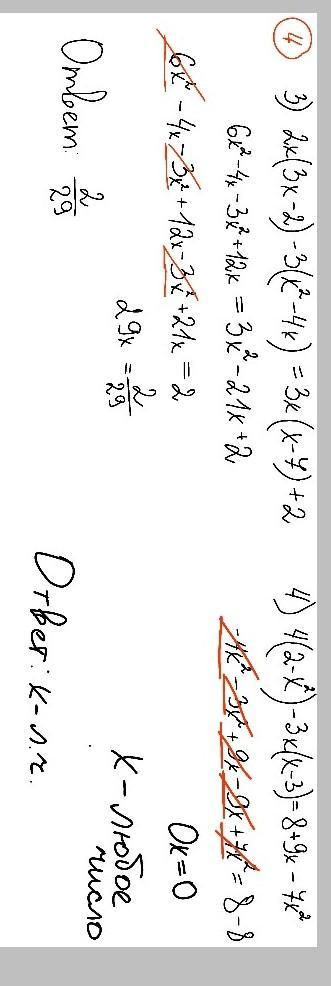 4
3) 2x(3x-2)-3(x²-4x)=3x(x-7)+2
6x²-4x-3x²+12x=3x²-21x+2
6x²-4x-3x²+12x-3x²+21x=2
29x=2/29
Ответ: 2/29
4) 4(2-x²)-3x(x-3)=8+9x-7x²
-4x²-3x²+9x-9x+7x²=8-8
0x=0
x-любое
число
Ответ: x-л.ч.